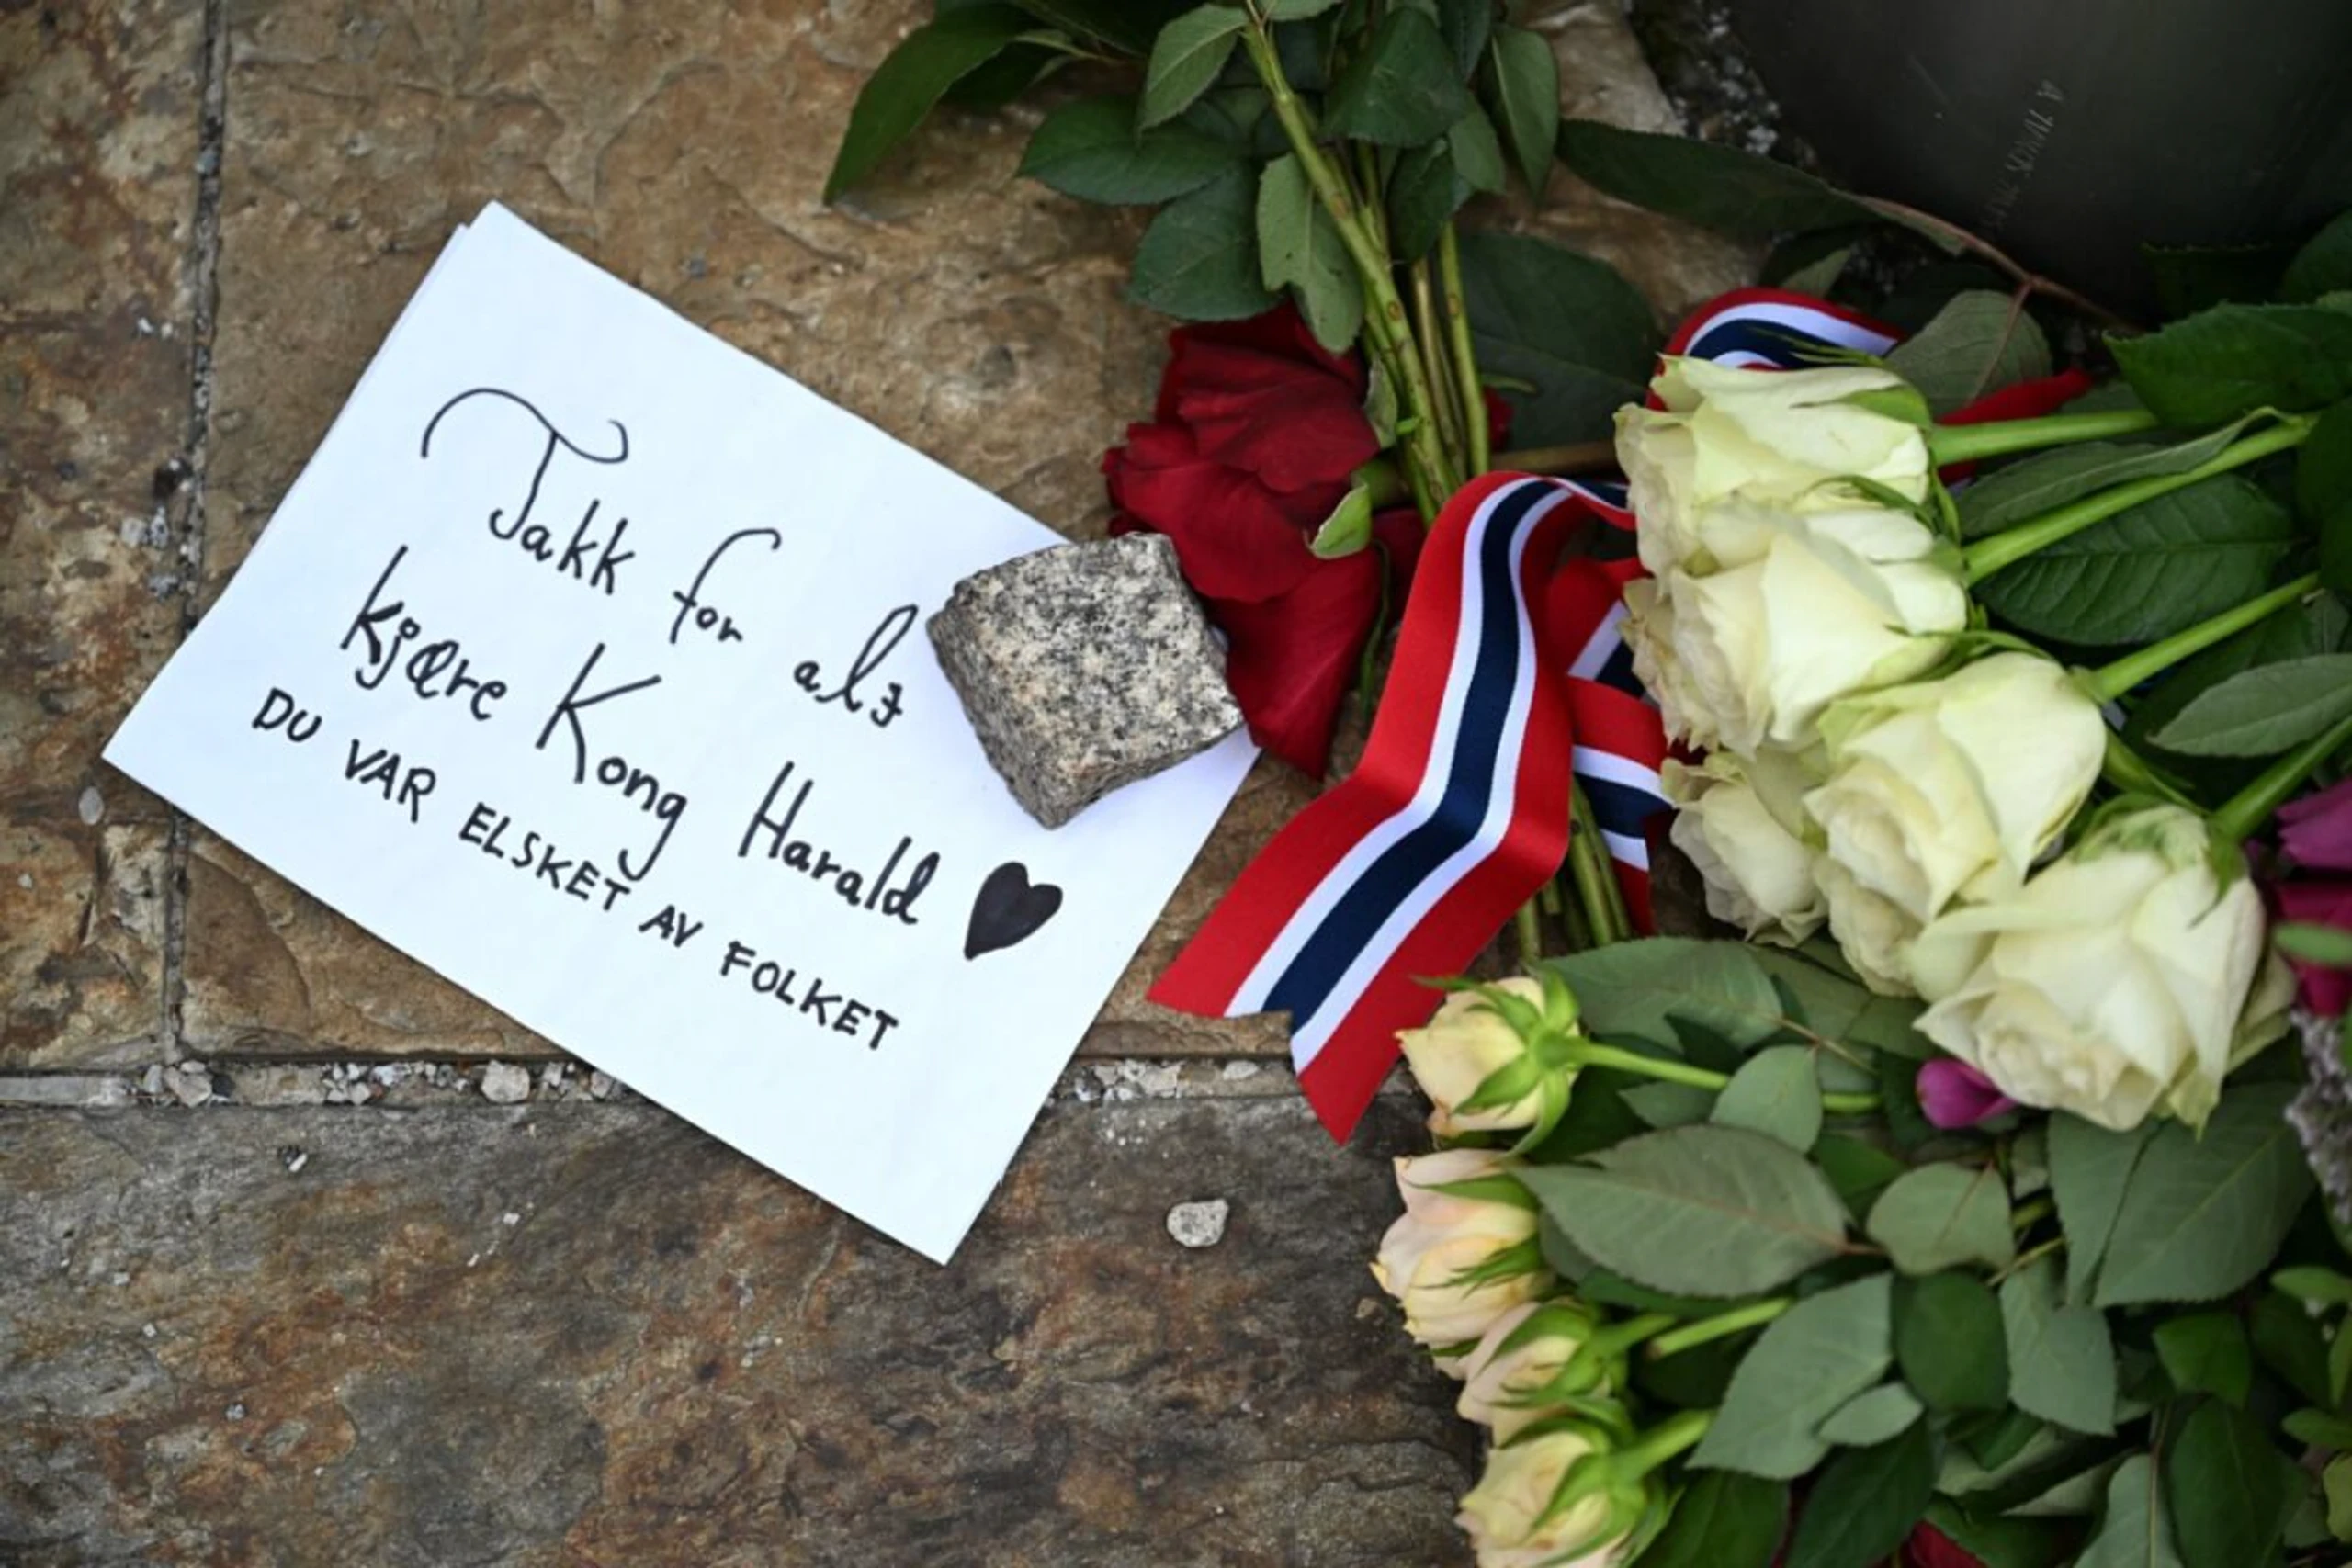 Takk for alt
kjære Kong Harald
DU VAR ELSKET AV FOLKET